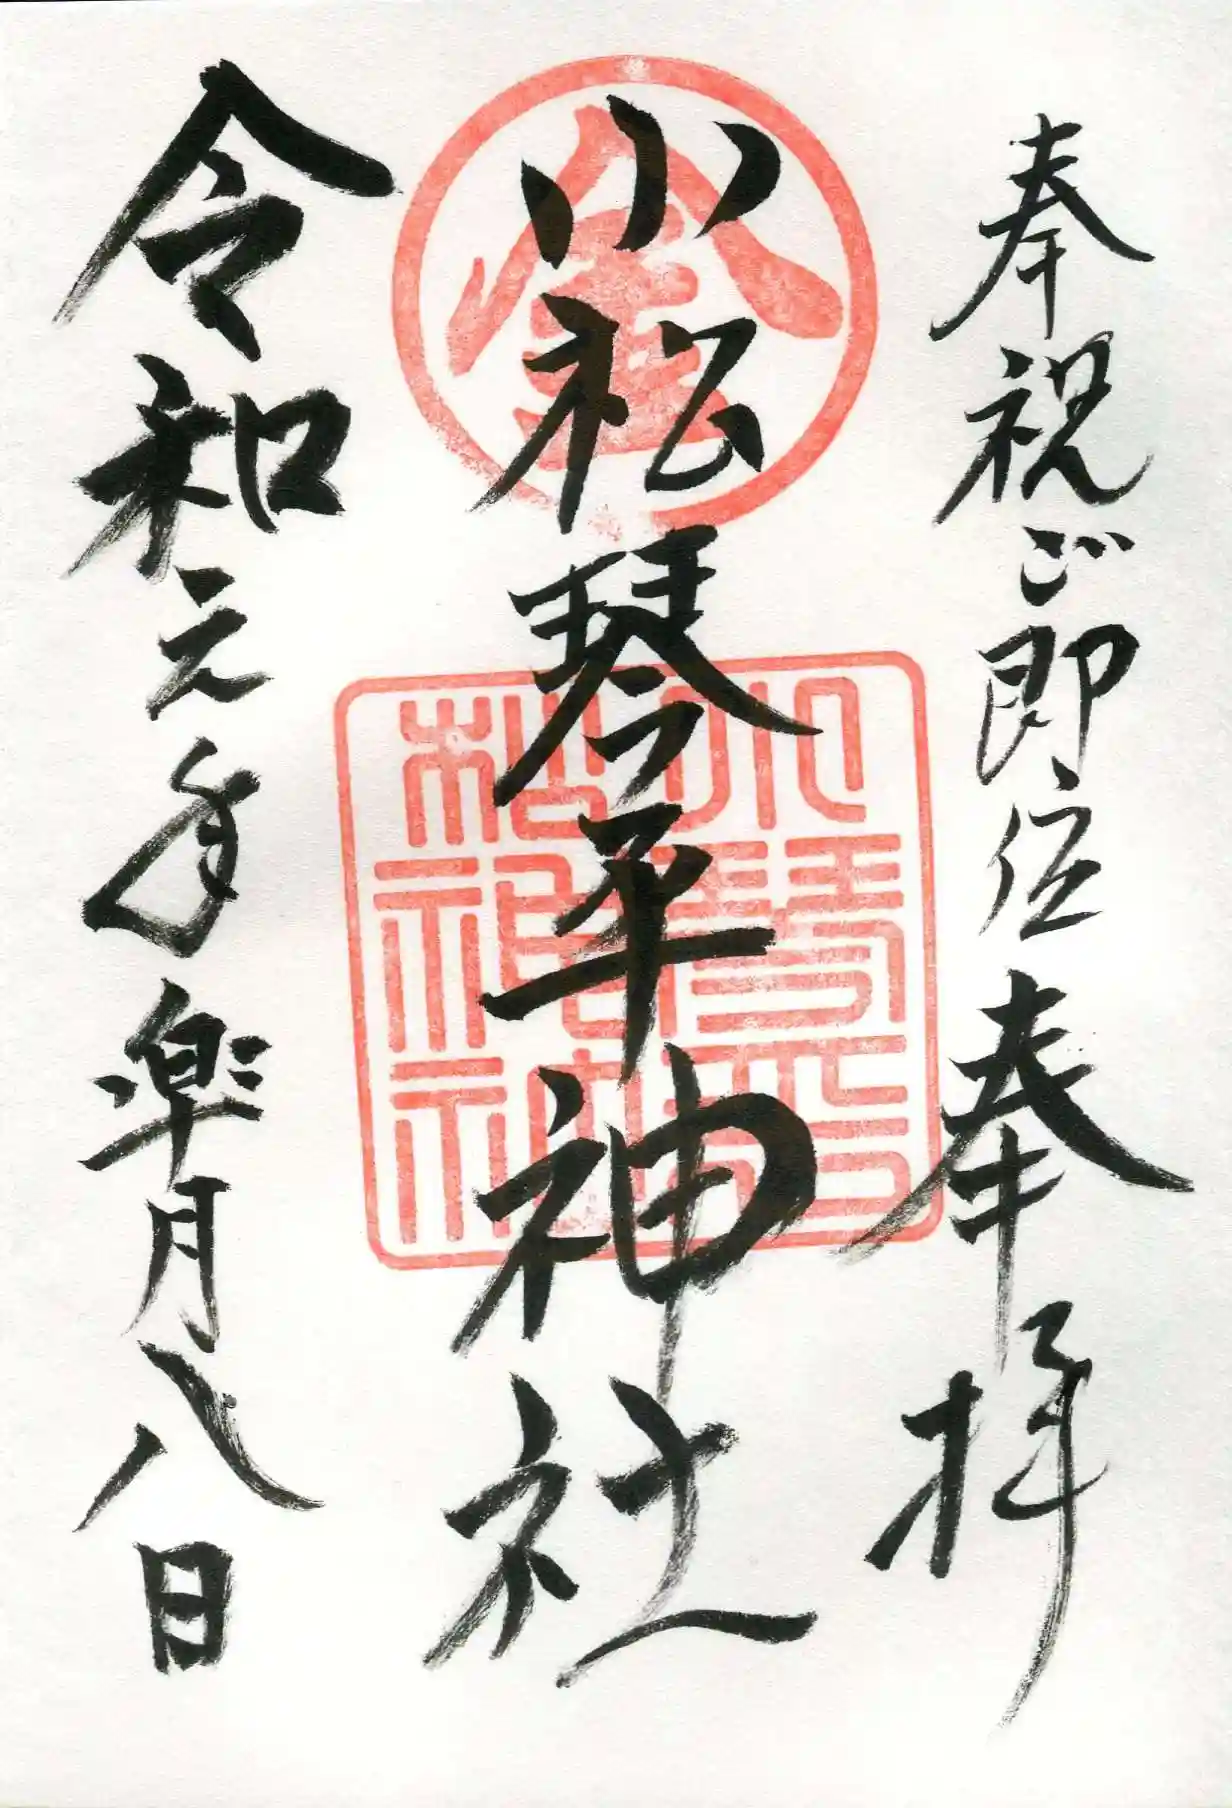 奉祝ご即位 奉拝
小松琴平神社
令和元年皐月八日
金
小松
琴神
平社